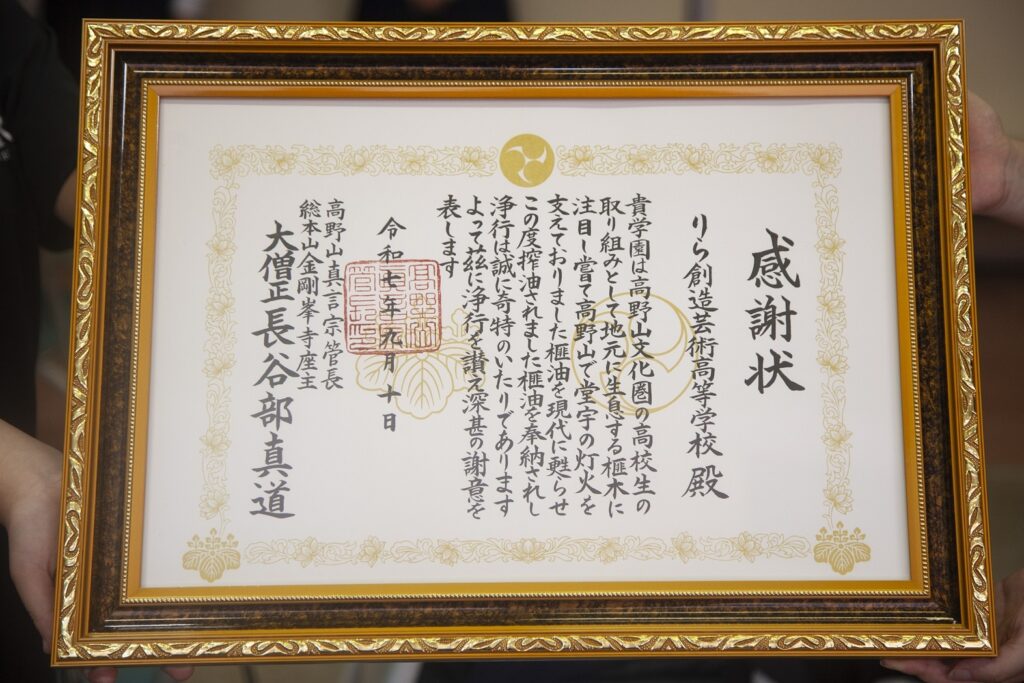 感謝状
りら創造芸術高等学校 殿
貴学園は高野山文化圏の高校生の
取り組みとして地元に生息する榧木に
注目し嘗て高野山で堂宇の灯火を
支えておりました榧油を現代に甦らせ
この度搾油されました榧油を奉納されし
浄行は誠に奇特のいたりであります
よって茲に浄行を讃え深甚の謝意を
表します
令和七年九月十日
高野山真言宗管長
総本山金剛峯寺座主
大僧正長谷部真道